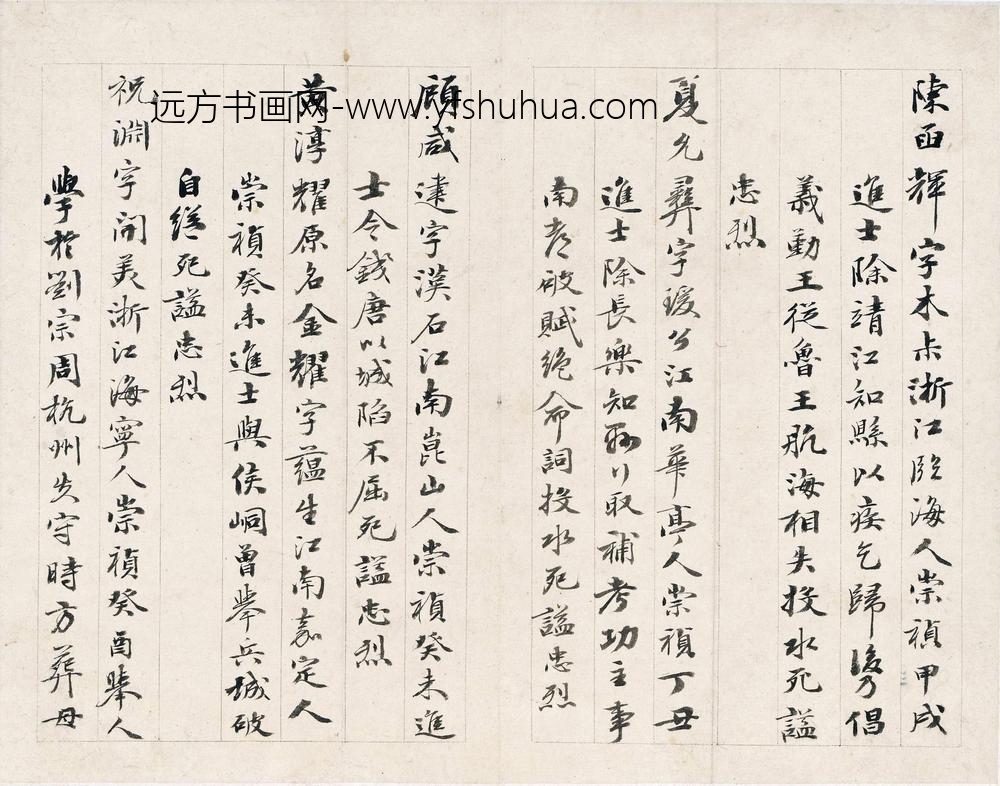 陳函輝字木未浙江臨海人崇禎甲戌
進士除靖江知縣以疾乞歸後倡
義勤王從魯王航海相失投水死謚
忠烈
夏允彞字瑗公江南華亭人崇禎丁丑
進士除長樂知縣行取補考功主事
南都破賦絶命詞投水死謚忠烈
顧咸建字漢石江南崑山人崇禎癸未進
士令錢唐以城陷不屈死謚忠烈
黄淳耀原名金耀字蘊生江南嘉定人
崇禎癸未進士與侯峒曾舉兵城破
自縊死謚忠烈
祝淵字開美浙江海寧人崇禎癸酉舉人
學於劉宗周杭州失守時方葬母
远方书画网-www.yfshuhua.com